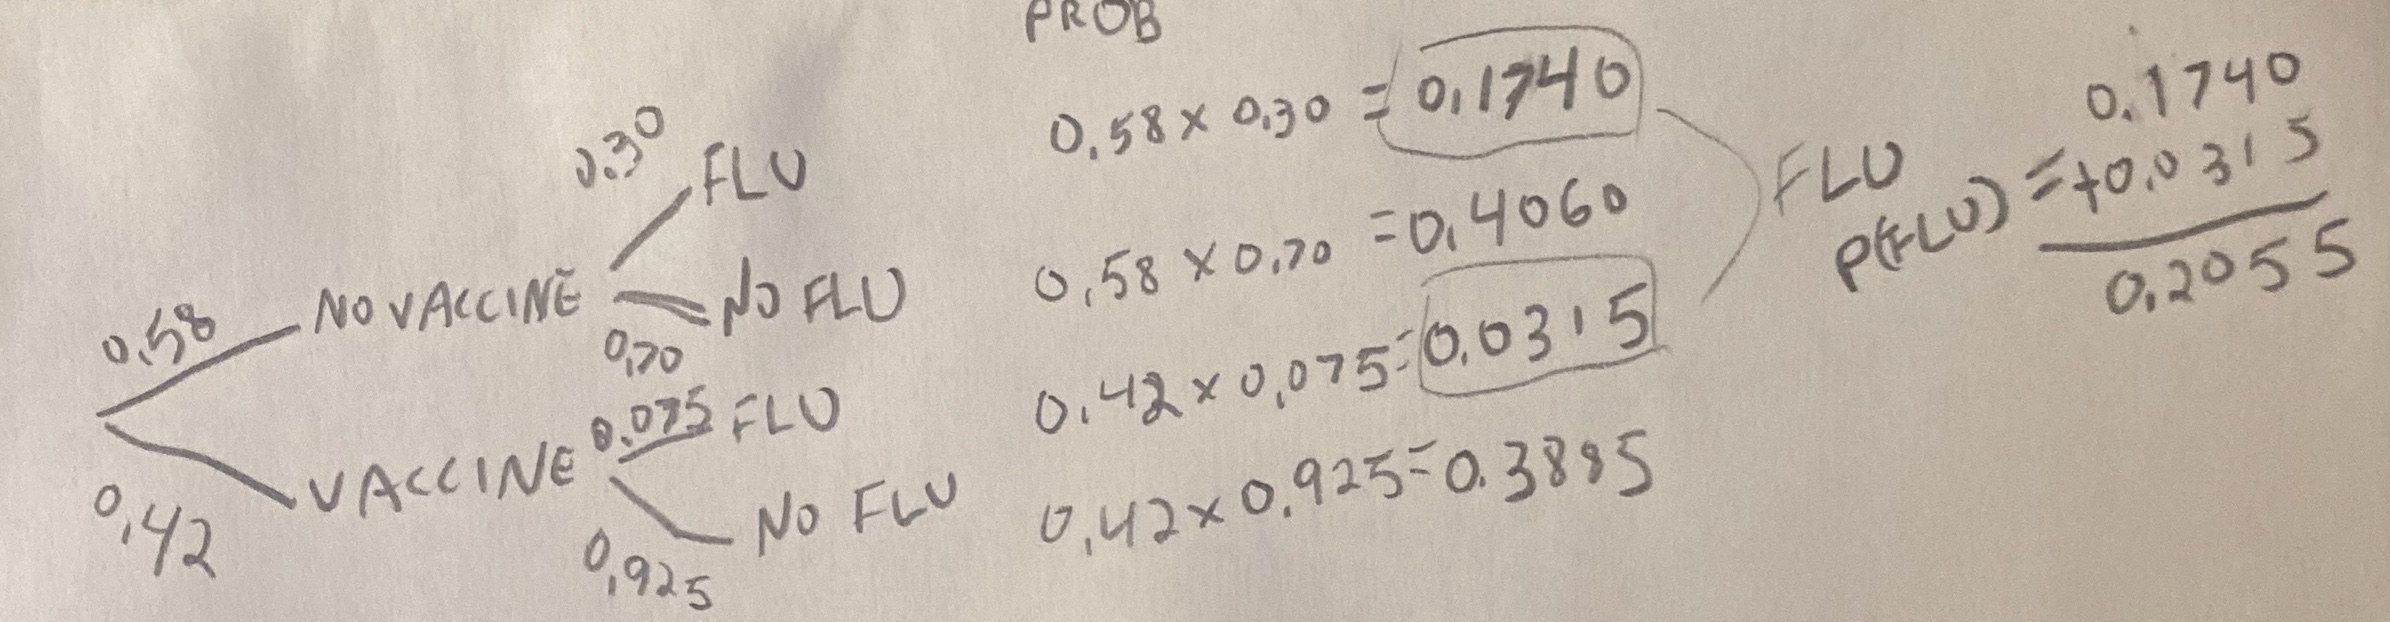 PROB
0.30 FLU 0.58 x 0.30 = 0.1740
0.58 NO VACCINE NO FLU 0.58 x 0.70 = 0.4060
0.70
0.075 FLU 0.42 x 0.075 = 0.0315
0.42 VACCINE NO FLU 0.42 x 0.925 = 0.3885
0.925
FLU 0.1740
P(FLU) = +0.0315
0.2055